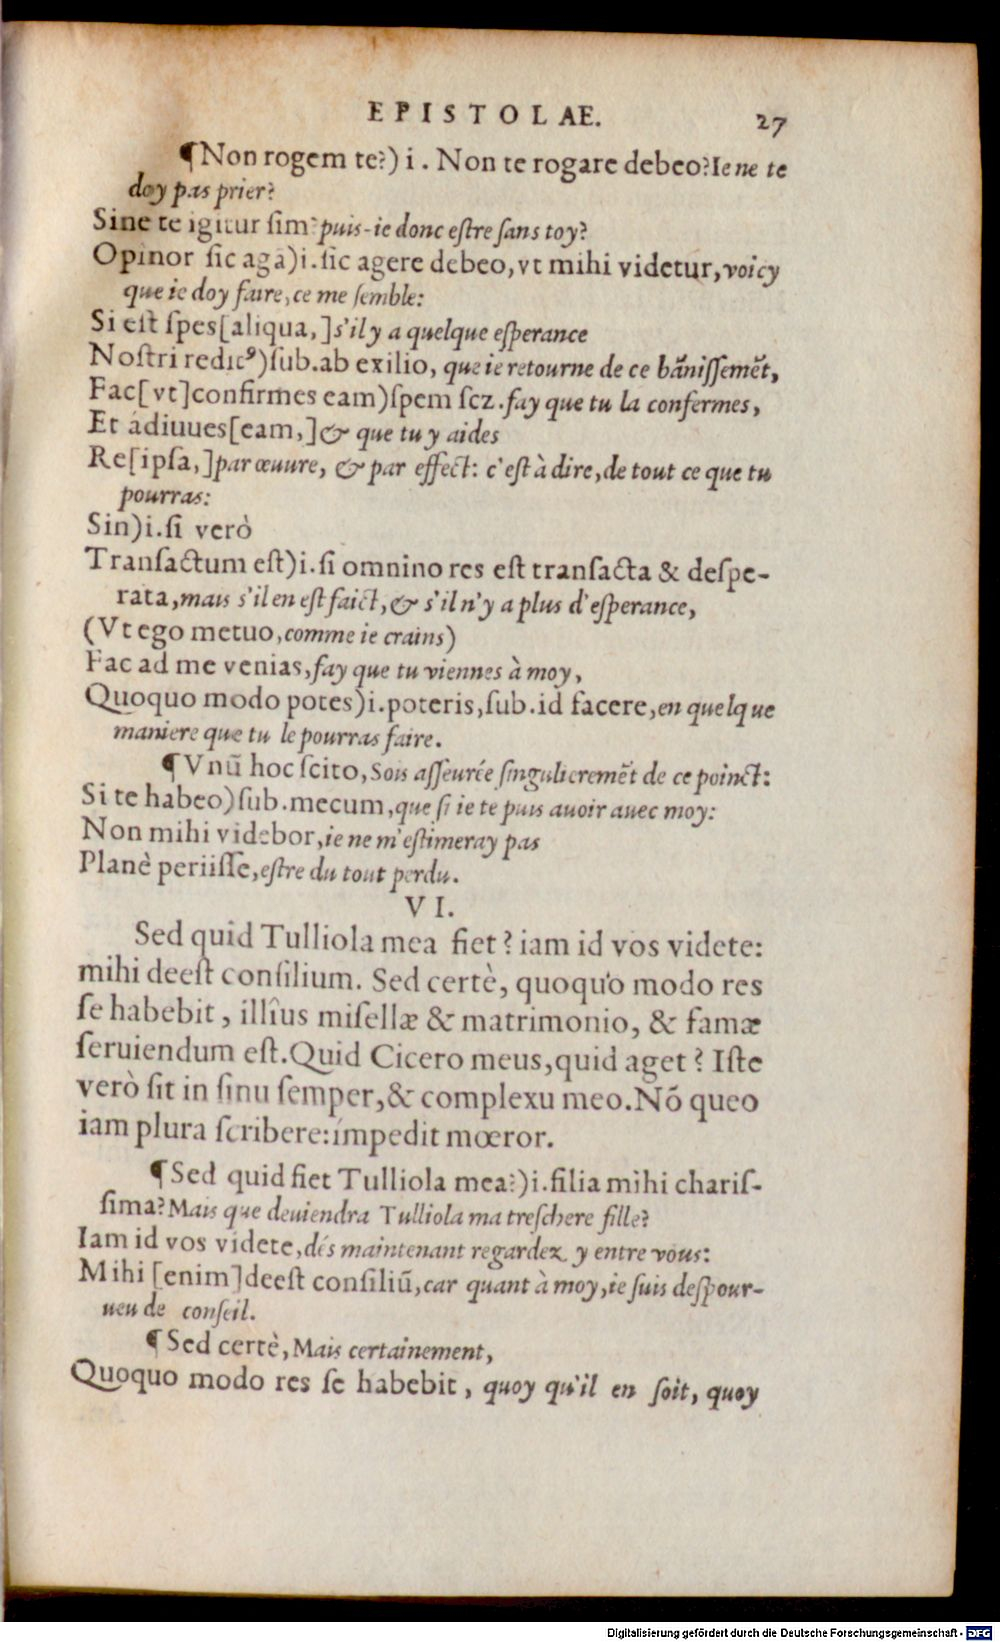 EPISTOLAE. 27
¶Non rogem te?) i. Non te rogare debeo? Ie ne te
doy pas prier?
Sine te igitur ſim? puis-ie donc eſtre ſans toy?
Opinor ſic agā) i. ſic agere debeo, vt mihi videtur, voicy
que ie doy faire, ce me ſemble:
Si eſt ſpes [aliqua,] s'il y a quelque eſperance
Noſtri reditꝰ) ſub. ab exilio, que ie retourne de ce bāniſſemēt,
Fac [vt] confirmes eam) ſpem ſcz. fay que tu la confermes,
Et ádiuues [eam,] & que tu y aides
Re [ipſa,] par œuure, & par effect: c'eſt à dire, de tout ce que tu
pourras:
Sin) i. ſi verò
Tranſactum eſt) i. ſi omnino res eſt tranſacta & deſpe-
rata, mais s'il en eſt faict, & s'il n'y a plus d'eſperance,
(Vt ego metuo, comme ie crains)
Fac ad me venias, fay que tu viennes à moy,
Quoquo modo potes) i. poteris, ſub. id facere, en quelque
maniere que tu le pourras faire.
¶Vnū hoc ſcito, Sois aſſeurée ſingulieremēt de ce poinct:
Si te habeo) ſub. mecum, que ſi ie te puis auoir auec moy:
Non mihi videbor, ie ne m'eſtimeray pas
Planè periiſſe, eſtre du tout perdu.
VI.
Sed quid Tulliola mea fiet? iam id vos videte:
mihi deeſt conſilium. Sed certè, quoquo modo res
ſe habebit, illîus miſellæ & matrimonio, & famæ
ſeruiendum eſt. Quid Cicero meus, quid aget? Iſte
verò ſit in ſinu ſemper, & complexu meo. Nō queo
iam plura ſcribere: impedit mœror.
¶Sed quid fiet Tulliola mea?) i. filia mihi chariſ-
ſima? Mais que deuiendra Tulliola ma treſchere fille?
Iam id vos videte, dés maintenant regardez y entre vous:
Mihi [enim] deeſt conſiliū, car quant à moy, ie ſuis deſpour-
ueu de conſeil.
¶Sed certè, Mais certainement,
Quoquo modo res ſe habebit, quoy qu'il en ſoit, quoy
Digitalisierung gefördert durch die Deutsche Forschungsgemeinschaft - DFG